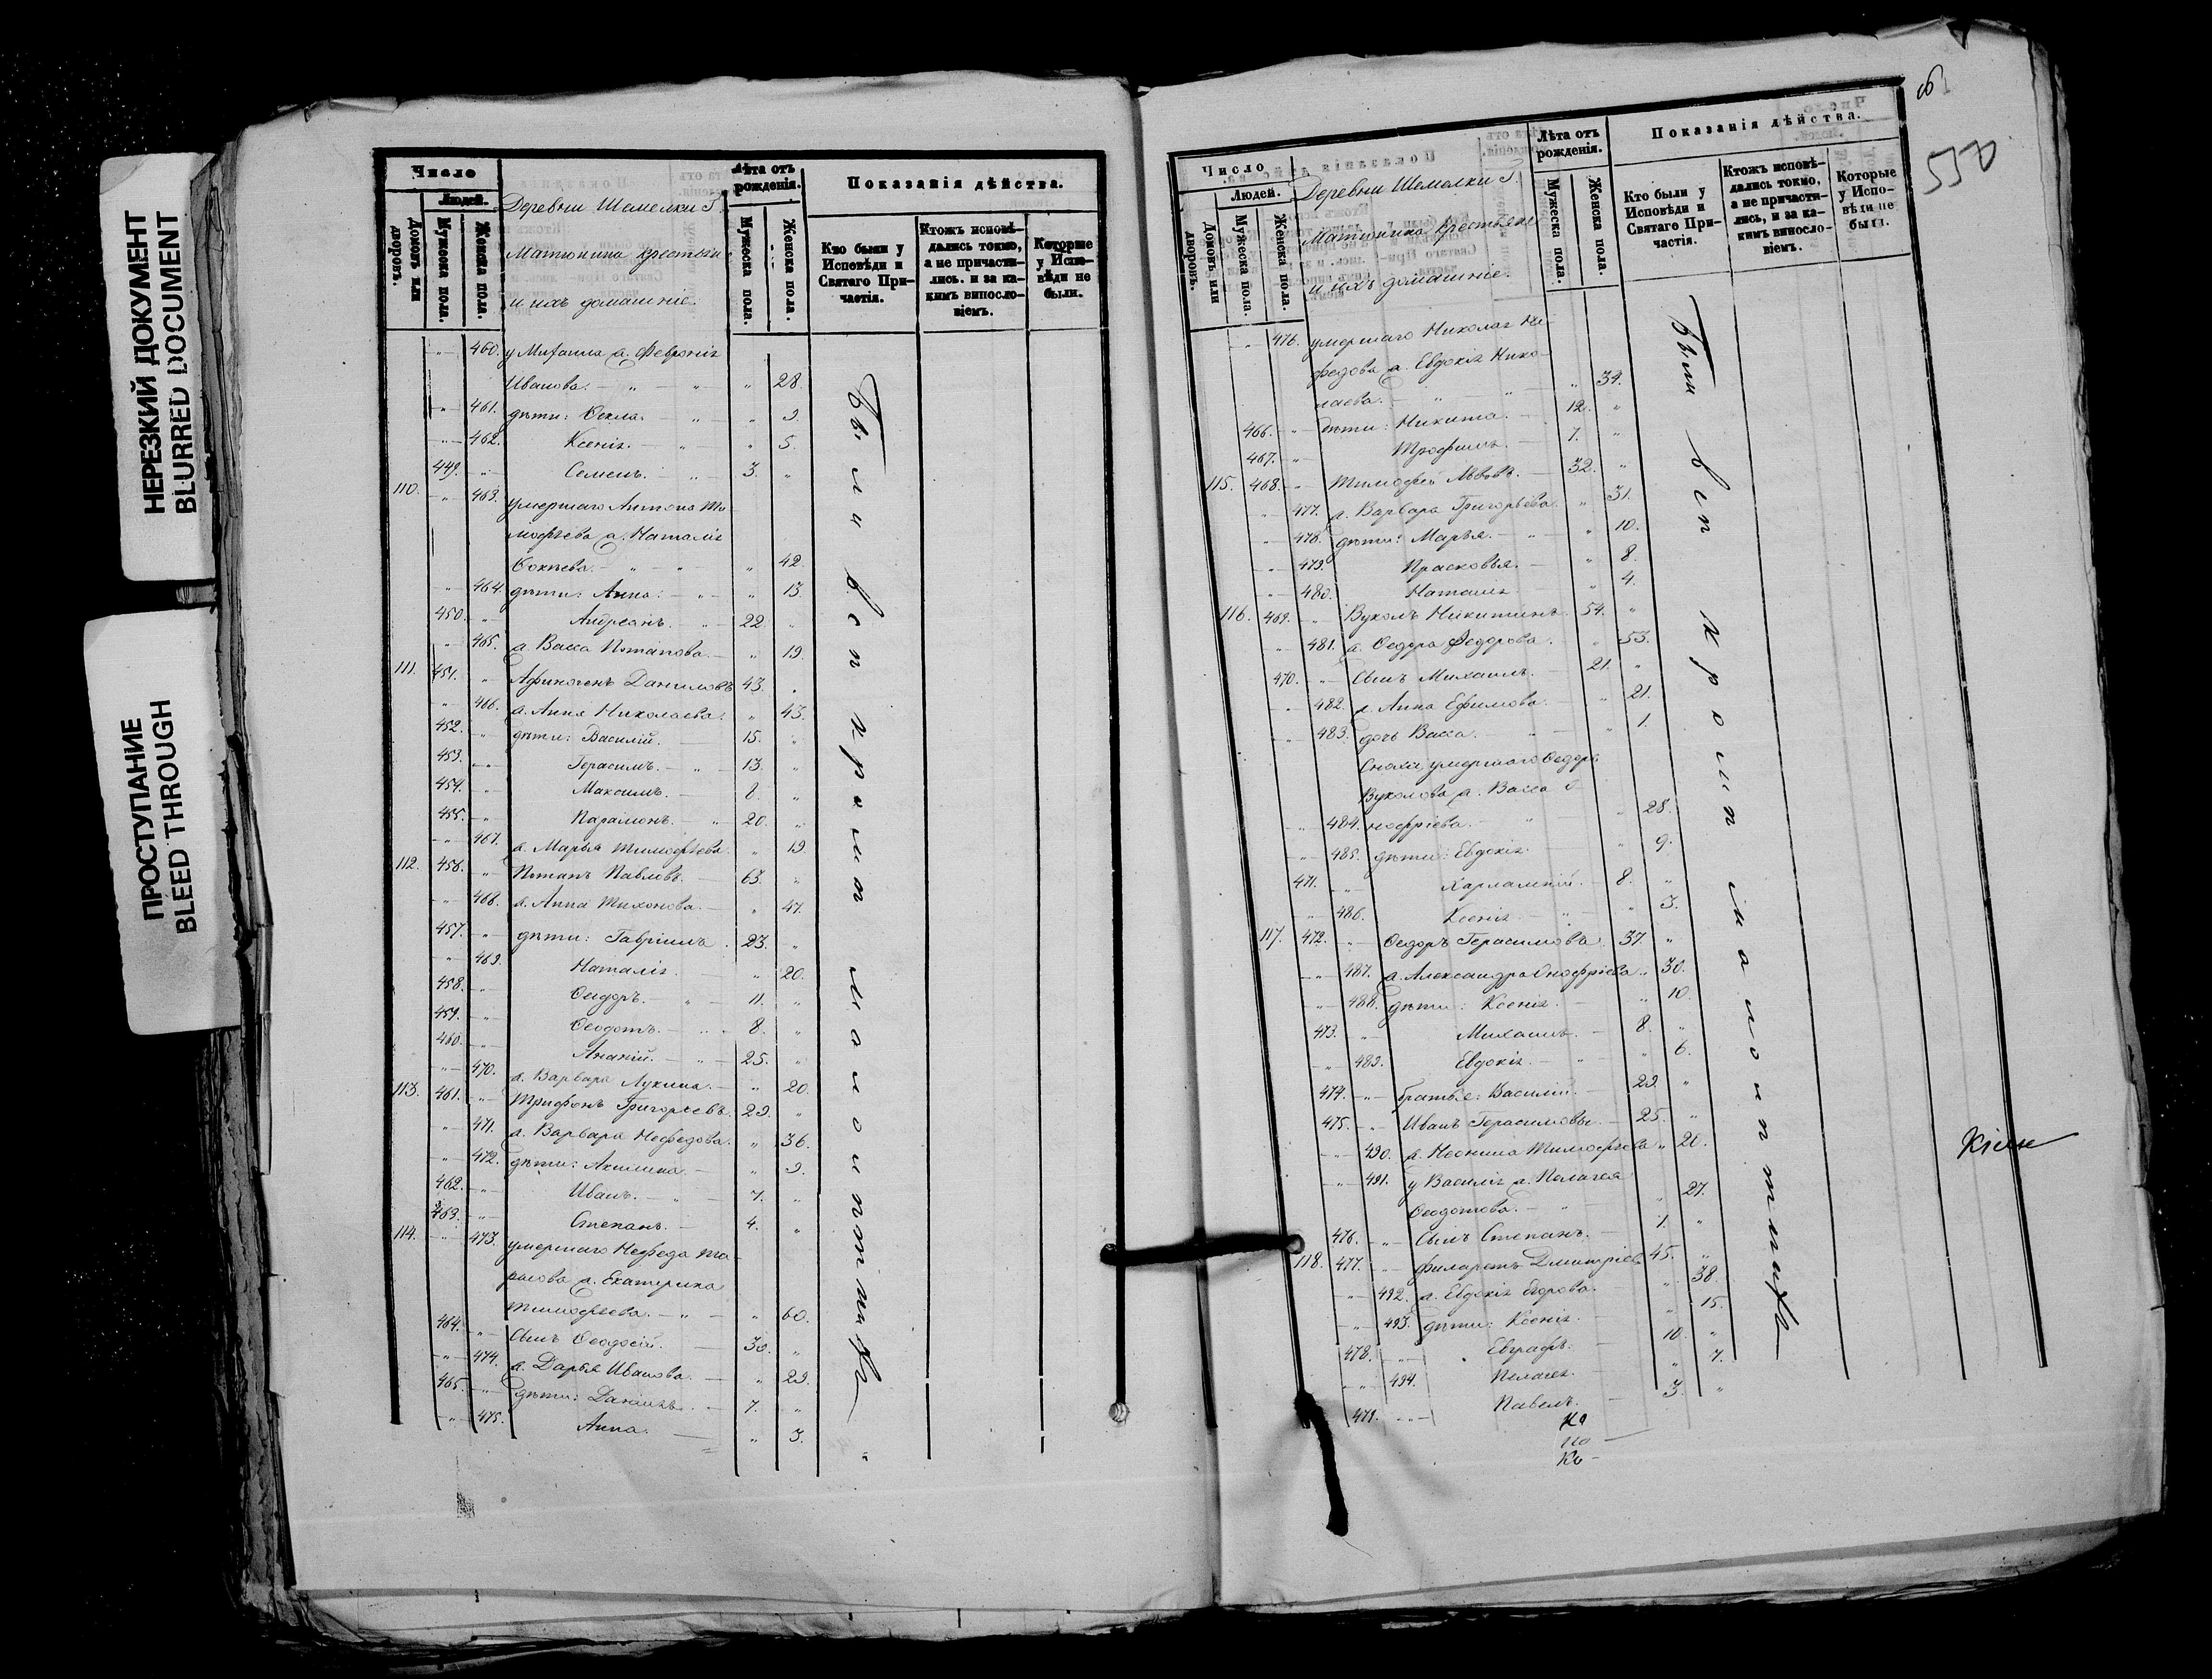 НЕРЕЗКИЙ ДОКУМЕНТ
BLURRED DOCUMENT
ПРОСТУПАНИЕ
BLEED THROUGH
Число
Людей.
Домовъ или дворовъ.
Мужеска пола.
Женска пола.
Деревни Шемелки Г.
Матюнина крестьяне
и ихъ домашніе.
Лѣта отъ рожденія.
Мужеска пола.
Женска пола.
Показанія дѣйства.
Кто были у Исповѣди и Святаго Причастія.
Ктожъ исповѣдались токмо, а не причастились, и за какимъ винословіемъ.
Которые у Исповѣди не были.
460. у Михаила ж. Февронія
Иванова. 28.
461. дѣти: Ѳекла. 9.
462. Ксенія. 5.
449. Семенъ. 3.
110. 463. умершаго Антона Ти
мофѣева ж. Наталія
Фокѣева. 42.
464. дѣти: Анна. 13.
450. Андреянъ. 22.
465. ж. Васса Потапова. 19.
111. 451. Афиногенъ Даниловъ 43.
466. ж. Анна Николаева. 43.
452. дѣти: Василій. 15.
453. Герасимъ. 13.
454. Максимъ. 8.
455. Парамонъ. 20.
467. ж. Марья Тимофѣева. 19.
112. 456. Потапъ Павловъ. 63.
468. ж. Анна Тихонова. 47.
457. дѣти: Гавріилъ. 23.
469. Наталія. 20.
458. Ѳедоръ. 11.
459. Ѳеодотъ. 8.
460. Ананій. 25.
470. ж. Варвара Лукина. 20.
113. 461. Трифонъ Григорьевъ. 29.
471. ж. Варвара Нефедова. 36.
472. дѣти: Акилина. 9.
462. Иванъ. 7.
463. Степанъ. 4.
114. 473. умершаго Нефеда Та
расова ж. Екатерина
Тимофѣева. 60.
464. Сынъ Ѳеодосій. 30.
474. ж. Дарья Иванова. 29.
465. дѣти: Даніилъ. 7.
475. Анна. 3.
Были всѣ кромѣ малолѣтнихъ
550
Число
Людей.
Домовъ или дворовъ.
Мужеска пола.
Женска пола.
Деревни Шемелки Г.
Матюнина крестьяне
и ихъ домашніе.
Лѣта отъ рожденія.
Мужеска пола.
Женска пола.
Показанія дѣйства.
Кто были у Исповѣди и Святаго Причастія.
Ктожъ исповѣдались токмо, а не причастились, и за какимъ винословіемъ.
Которые у Исповѣди не были.
476. умершаго Николая Не
федова ж. Евдокія Нико
лаева. 34.
466. дѣти: Никита. 12.
467. Трофимъ. 7.
115. 468. Тимофей Львовъ. 32.
477. ж. Варвара Григорьева. 31.
478. дѣти: Марья. 10.
479. Прасковья. 8.
480. Наталія 4.
116. 469. Вуколъ Никитинъ. 54.
481. ж. Ѳедора Федорова. 53.
470. Сынъ Михаилъ. 21.
482. ж. Анна Ефимова. 21.
483. дочь Васса. 1.
Сноха, умершаго Ѳедора
Вуколова ж. Васса О
484. нофріева. 28.
485. дѣти: Евдокія. 9.
471. Харлампій. 8.
486. Ксенія. 3.
117. 472. Ѳедоръ Герасимовъ. 37.
487. ж. Александра Онофріева 30.
488. дѣти: Ксенія. 10.
473. Михаилъ. 8.
489. Евдокія. 6.
474. братья: Василій. 29.
475. Иванъ Герасимовы. 25.
490. ж. Неонила Тимофѣева 20.
491. у Василія ж. Пелагея
Ѳедотова. 27.
476. Сынъ Степанъ. 1.
118. 477. Филаретъ Дмитріевъ 45.
492. ж. Евдокія Егорова. 38.
493. дѣти: Ксенія. 15.
478. Евграфъ. 10.
494. Пелагея. 7.
479. Павелъ. 3.
Были всѣ кромѣ малолѣтнихъ